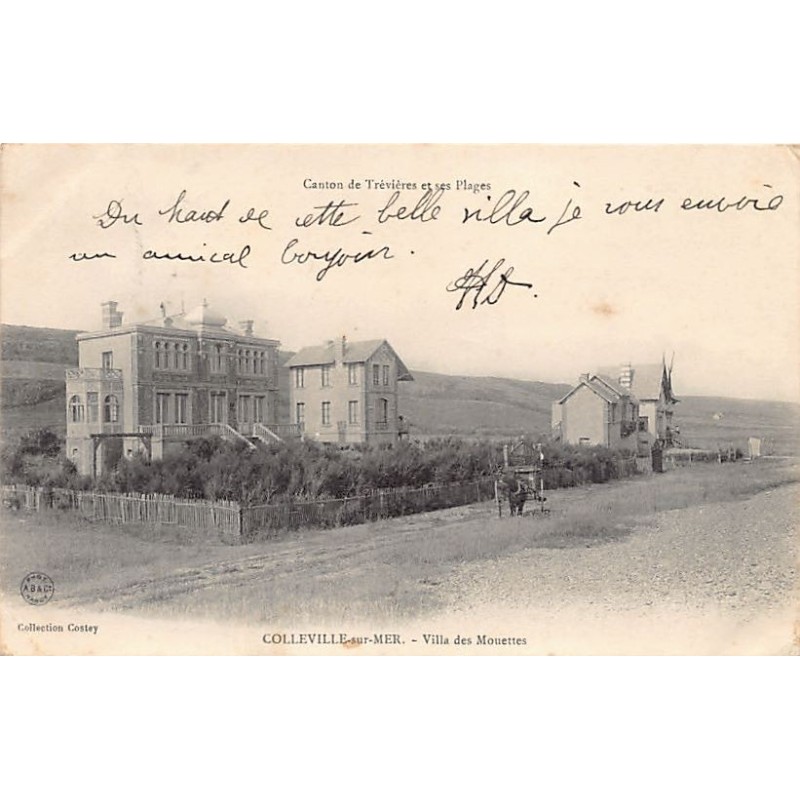 Canton de Trévières et ses Plages
Du haut de cette belle villa je vous envoie
un amical bonjour.
COLLEVILLE-sur-MER. - Villa des Mouettes
Collection Costey
A B & Cie